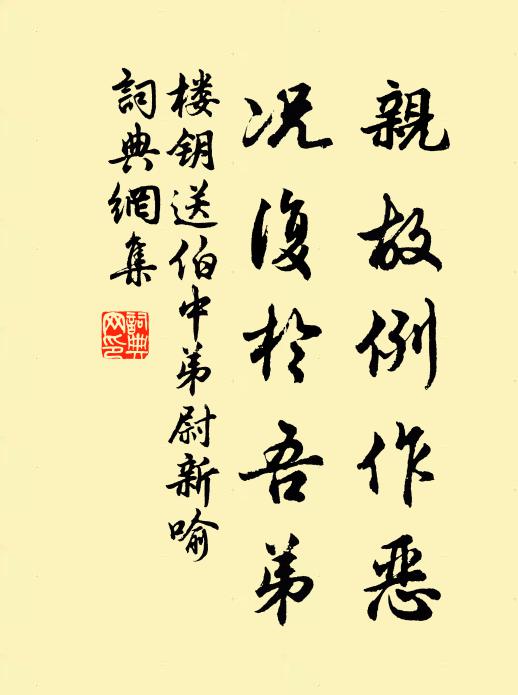 親故例作惡
况復於吾弟
楼钥送伯中弟尉新喻
詞典網集
詞典網印